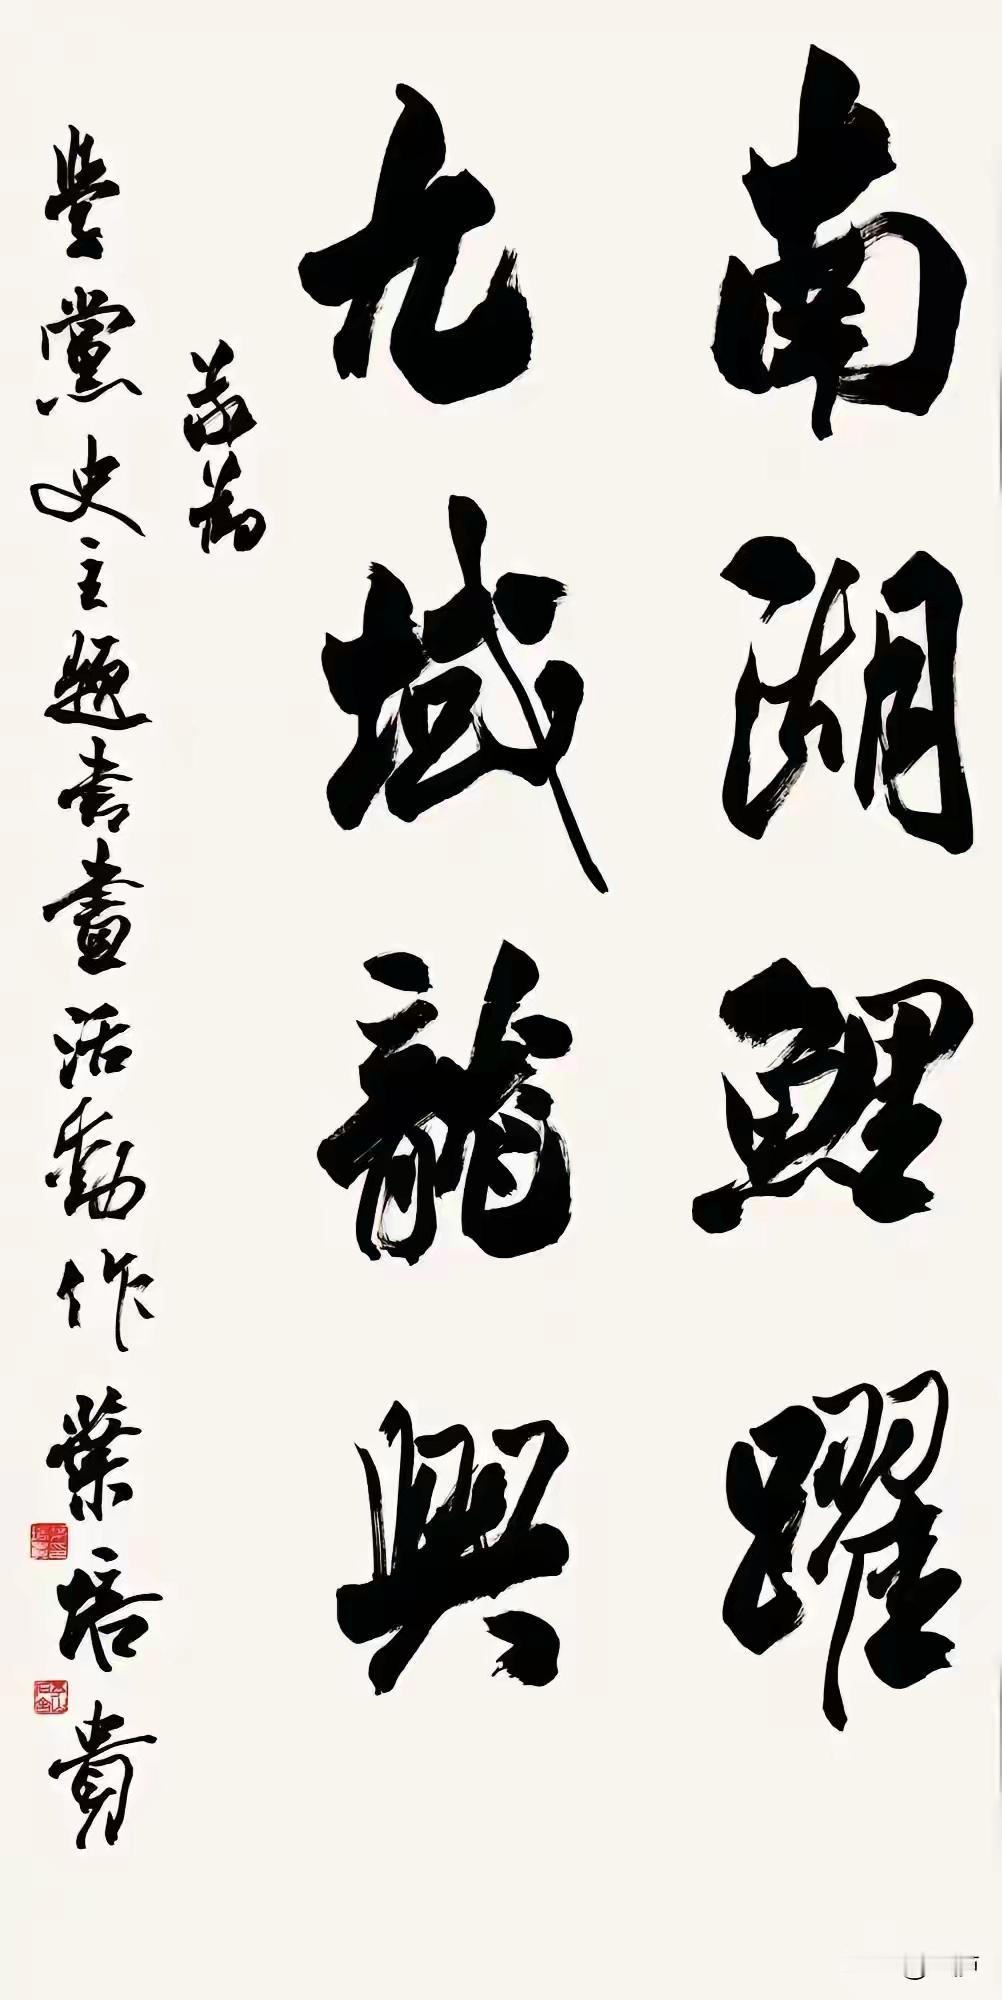 南湖鯉躍
九域龍興
學黨史主題書畫活動作 葉培貴